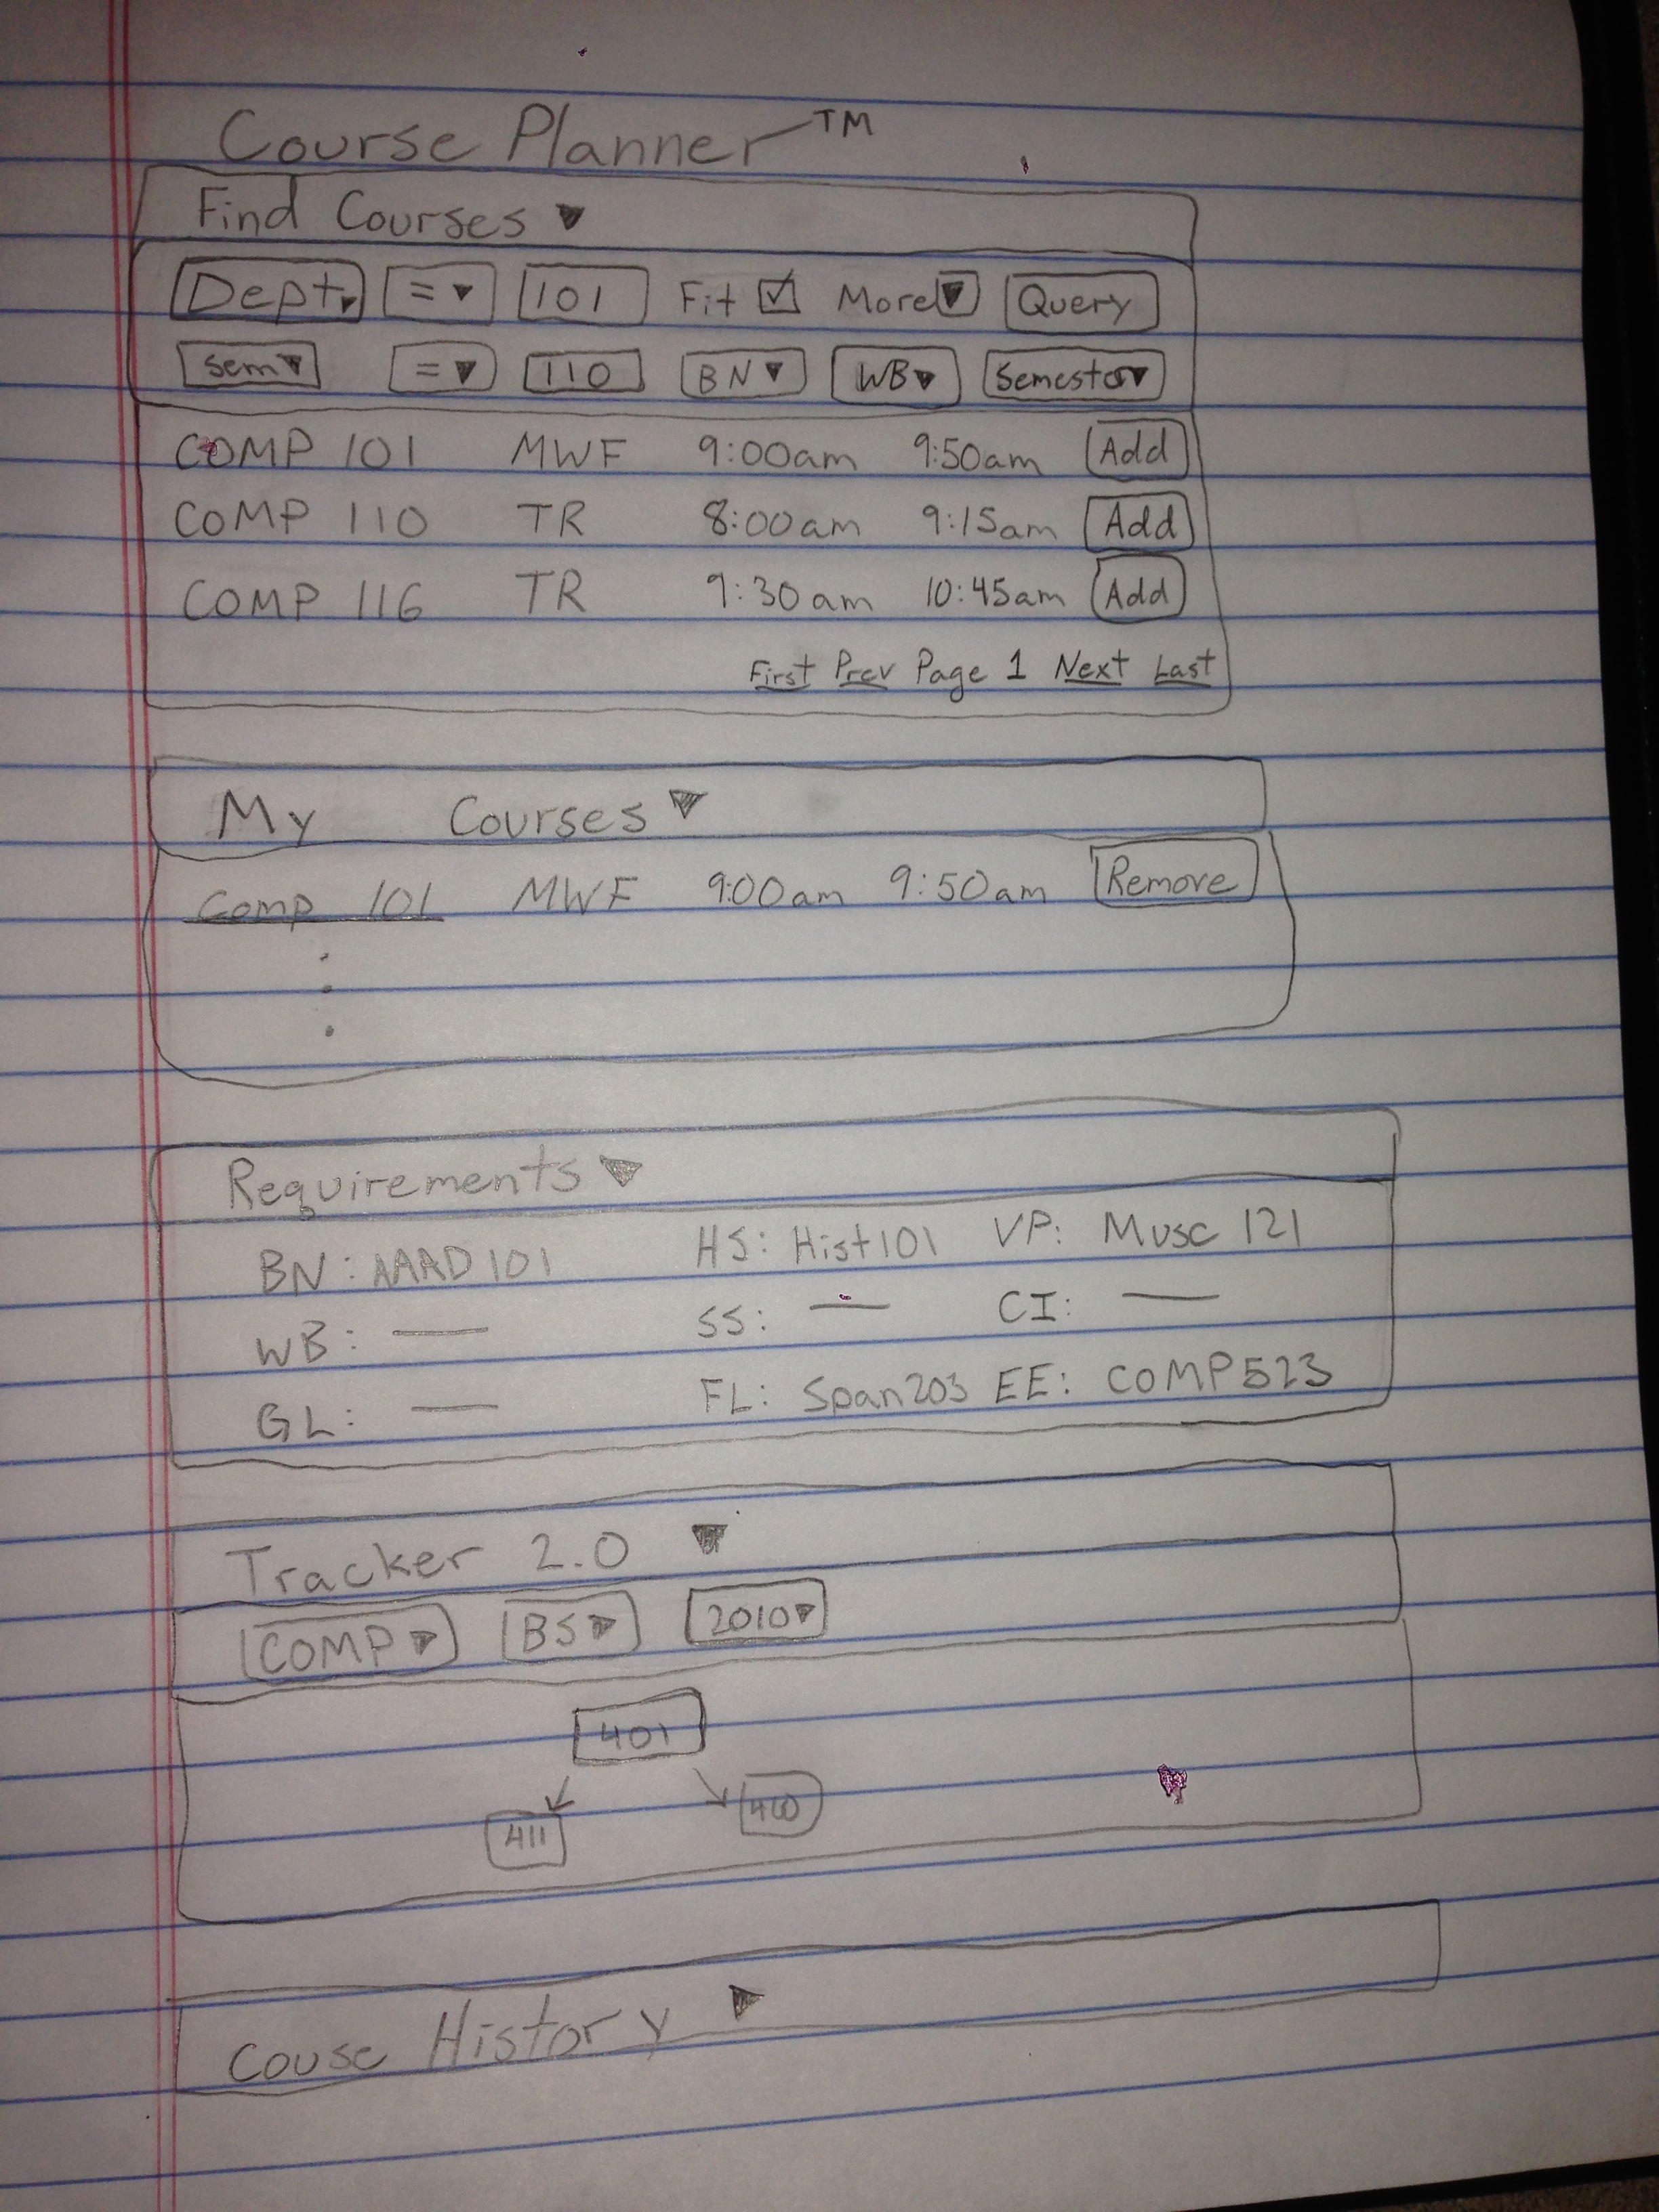 Course Planner™
Find Courses ▼
Dept▼ =▼ 101 Fit ☑ More▼ Query
Sem▼ =▼ 110 BN▼ WB▼ Semester▼
COMP 101 MWF 9:00am 9:50am Add
COMP 110 TR 8:00am 9:15am Add
COMP 116 TR 9:30am 10:45am Add
First Prev Page 1 Next Last
My Courses ▼
Comp 101 MWF 9:00am 9:50am Remove
Requirements ▼
BN: AAAD 101 HS: Hist101 VP: Musc 121
WB: — SS: — CI: —
GL: — FL: Span203 EE: COMP523
Tracker 2.0 ▼
COMP▼ BS▼ 2010▼
401
411 410
Couse History ▶